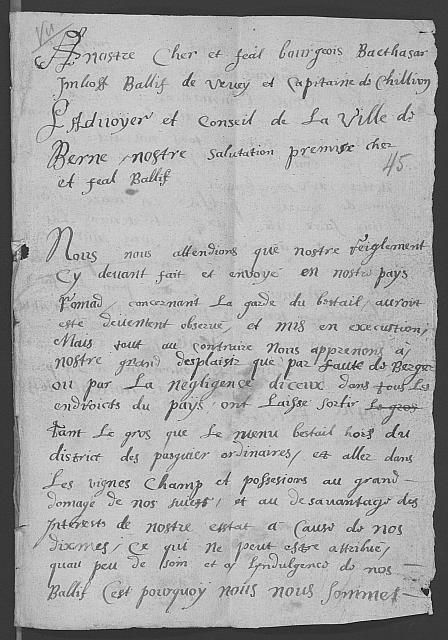 VII
A nostre Cher et feal bourgeois Balthasar
Imhoff Ballif de Vevey et Capitaine de Chillion
L'Advoyer et Conseil de La Ville de
Berne, nostre salutation premise cher
et feal Ballif
45
Nous nous attendions que nostre reiglement
Cy devant fait et envoyé en nostre pays
romad, concernant La garde du bestail, auroit
esté deuement observé, et mis en execution,
Mais tout au contraire Nous apprenons à
nostre grand desplaisir que par faute de Berger
ou par La negligence d'iceux dans tous Les
endroicts du pays, ont Laissé sortir Le gros
tant Le gros que Le menu bestail hors du
district des pasquier ordinaires, et allez dans
Les vignes Champ et possesions au grand
domage de nos sujets, et au desavantage des
Interests de nostre estat a Cause de nos
dixmes, Ce qui Ne peut estre attribué,
qu'au peu de soin et a L'indulgence de nos
Ballif C'est pourquoy nous nous sommes